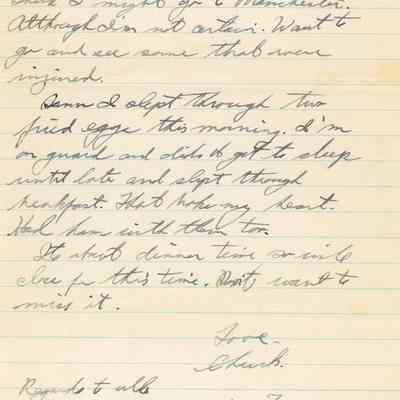 think I might go to Manchester.
Although I'm not certain. Want to
go and see some that were
injured.
Damn I slept through two
fried eggs this morning. I'm
on guard and didn't get to sleep
until late and slept through
breakfast. That broke my heart.
Had ham with them too.
Its about dinner time so will
close for this time. Don't want to
miss it.
Love.
Chuck.
Regards to all